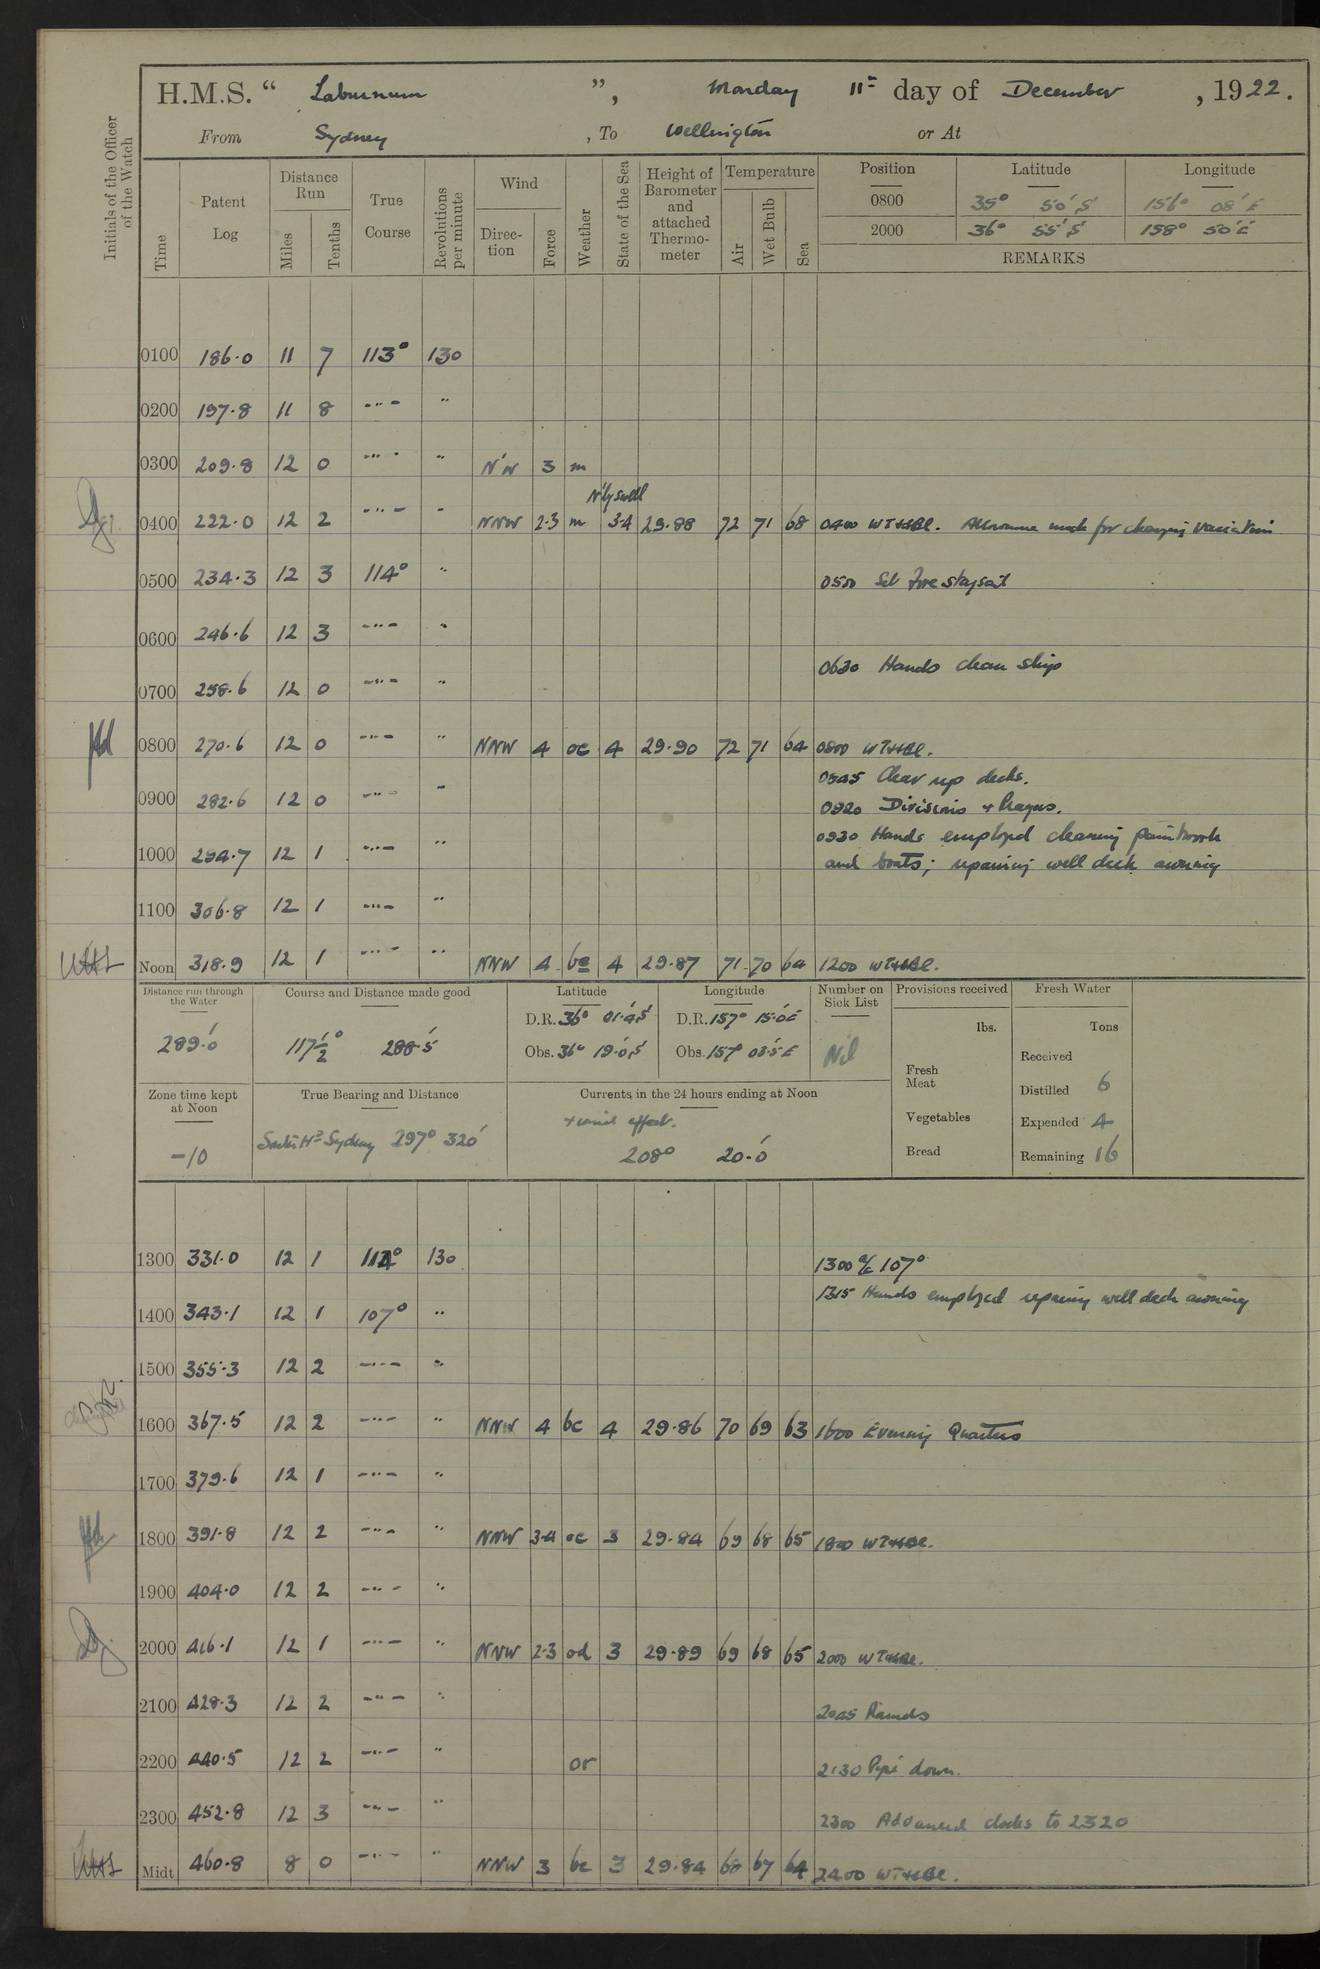 H.M.S. “ Laburnum ”, Monday 11th day of December , 1922.
From Sydney , To Wellington or At
Initials of the Officer of the Watch
Time Patent Log Distance Run Miles Tenths True Course Revolutions per minute Wind Direction Force Weather State of the Sea Height of Barometer and attached Thermometer Temperature Air Wet Bulb Sea
Position Latitude Longitude
0800 35° 50' S 156° 08' E
2000 36° 55' S 158° 50' E
REMARKS
0100 186.0 11 7 113° 130
0200 197.8 11 8 -"- "
0300 209.8 12 0 -"- " N'W 3 m
N'ly swell
0400 222.0 12 2 -"- " NNW 2.3 m 3.4 29.88 72 71 68 0400 WT+HBl. Allowance made for changing variation
0500 234.3 12 3 114° " 0500 Set Fore staysail
0600 246.6 12 3 -"- "
0630 Hands clean ship
0700 258.6 12 0 -"- "
0800 270.6 12 0 -"- " NNW 4 oc 4 29.90 72 71 64 0800 WT+HBl.
0845 Clear up decks.
0900 282.6 12 0 -"- " 0920 Divisions + Prayers.
0930 Hands employed cleaning paintwork
1000 294.7 12 1 -"- " and boats; repairing well deck awning
1100 306.8 12 1 -"- "
Noon 318.9 12 1 -"- " NNW 4 bc 4 29.87 71 70 64 1200 WT+HBl.
Distance run through the Water Course and Distance made good Latitude Longitude Number on Sick List Provisions received Fresh Water
289.0' 117½° 288.5' D.R. 36° 01.4'S D.R. 157° 15.0'E lbs. Tons
Obs. 36° 19.0'S Obs. 157° 03.5'E Nil Received
Fresh Meat Distilled 6
Zone time kept at Noon True Bearing and Distance Currents in the 24 hours ending at Noon
+ wind effect. Vegetables Expended 4
-10 Hd Sydney 297° 320' 208° 20.0' Bread Remaining 16
1300 331.0 12 1 114° 130 1300 a/c 107°
1315 Hands employed repairing well deck awning
1400 343.1 12 1 107° "
1500 355.3 12 2 -"- "
1600 367.5 12 2 -"- " NNW 4 bc 4 29.86 70 69 63 1600 Evening Quarters
1700 379.6 12 1 -"- "
1800 391.8 12 2 -"- " NNW 3.4 oc 3 29.84 69 68 65 1800 WT+HBl.
1900 404.0 12 2 -"- "
2000 416.1 12 1 -"- " NNW 2.3 od 3 29.89 69 68 65 2000 WT+HBl.
2100 428.3 12 2 -"- " 2045 Rounds
2200 440.5 12 2 -"- " or 2130 Pipe down.
2300 452.8 12 3 -"- " 2300 Advanced clocks to 2320
Midt 460.8 8 0 -"- " NNW 3 bc 3 29.84 68 67 64 2400 WT+HBl.